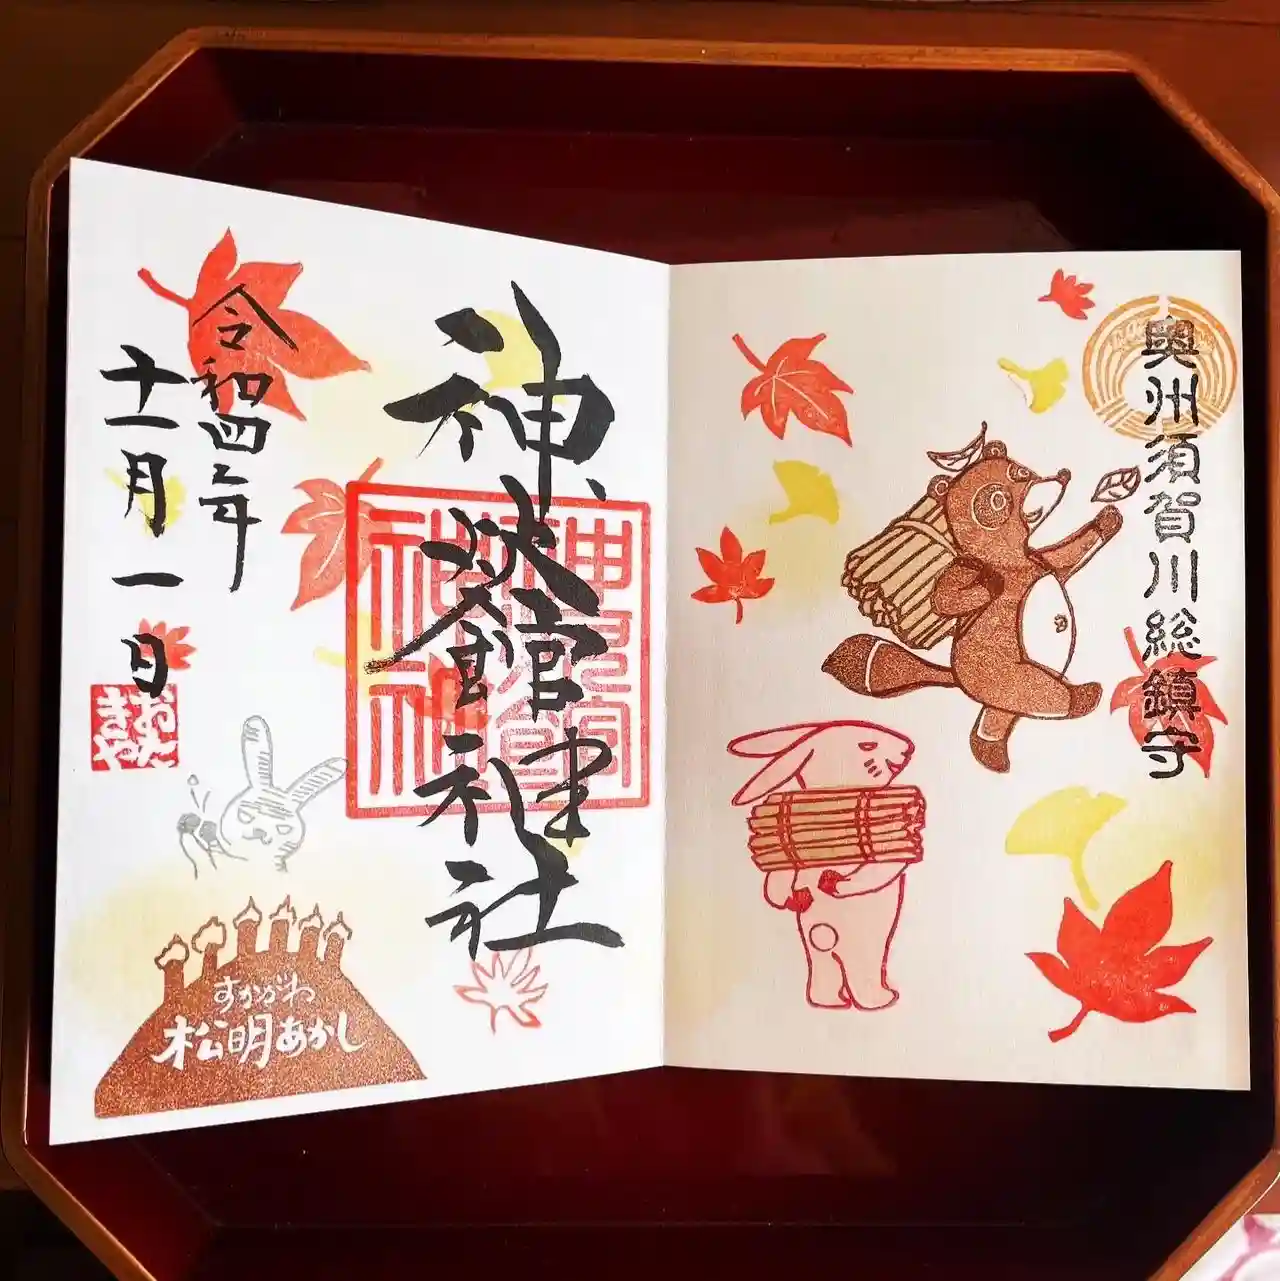 奥州須賀川総鎮守
神炊館神社
令和四年
十一月一日
おたきや
すかがわ
松明あかし